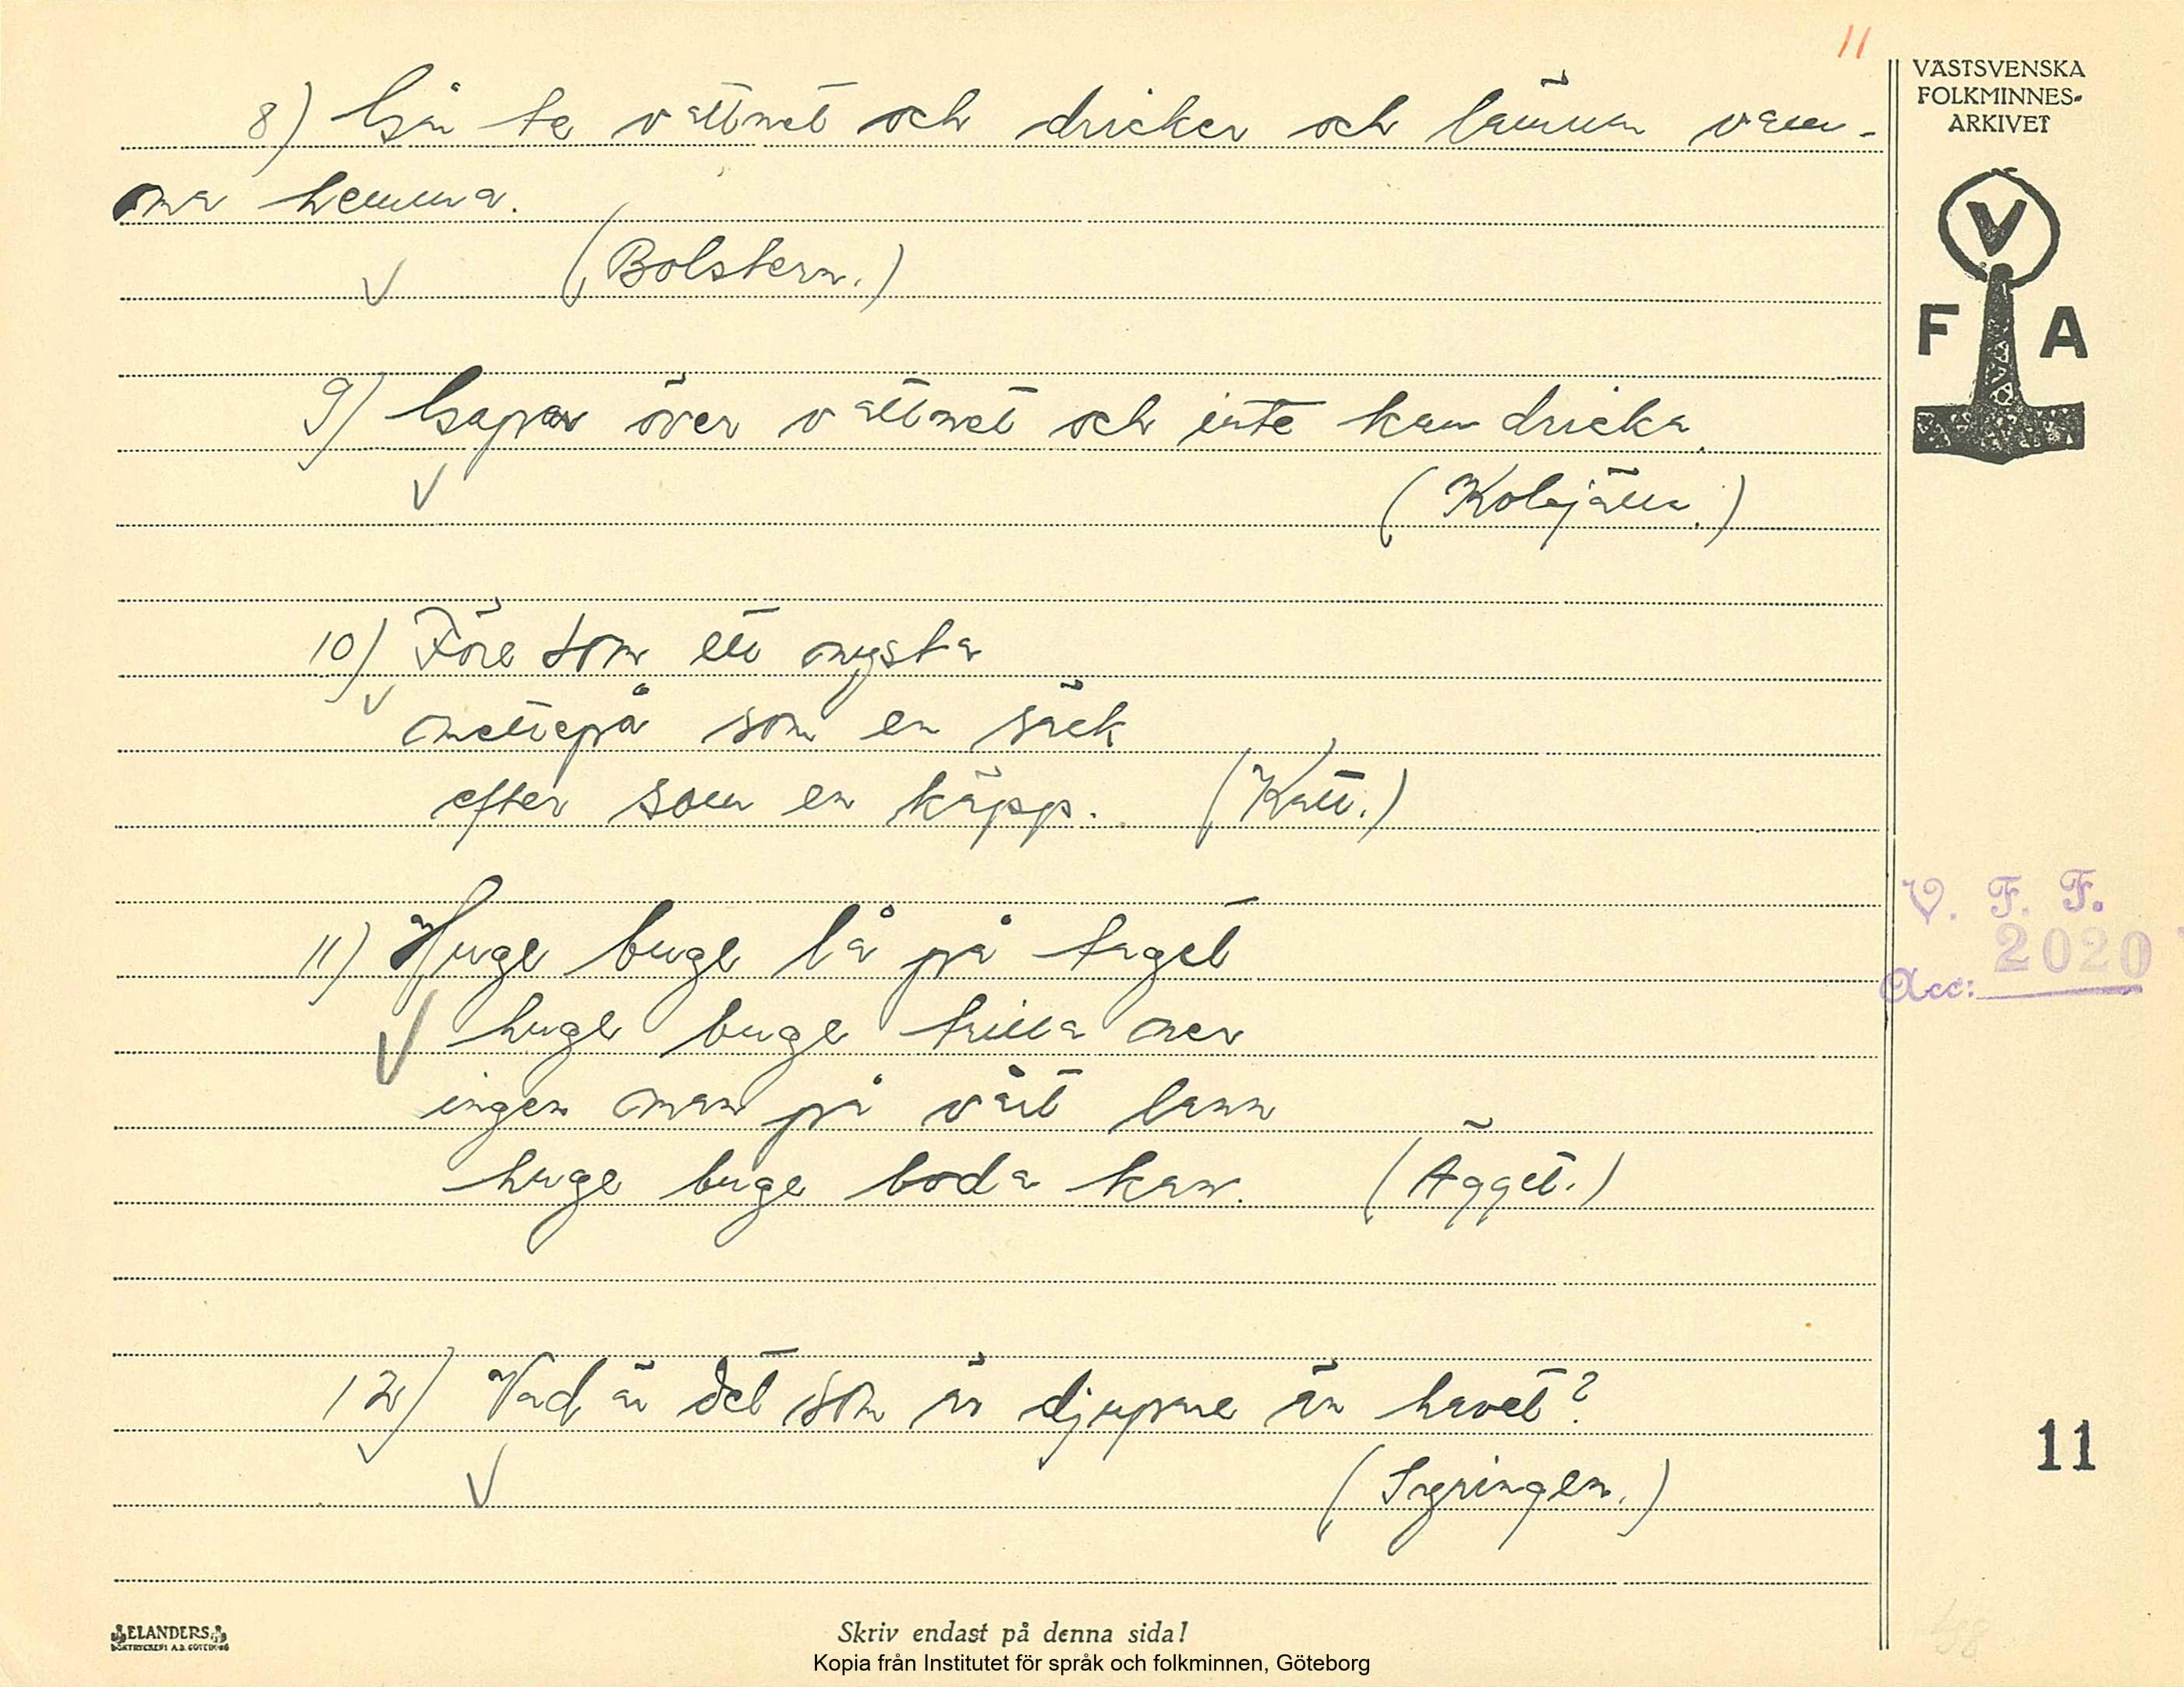 11
VÄSTSVENSKA
FOLKMINNES-
ARKIVET
V
F A
8) Gån te vattnet och dricker och lämnar vam-
ma hemma.
(Bolstern.)
9) Gapar över vattnet och inte kan dricka.
(Koskälla.)
10) Före som ett nysta
mettepå som en säck
efter som en käpp. (Katt.)
11) Huge buge lå på taget
huge buge trilla ner
ingen man på vårt lann
huge buge boda kan. (Ägget.)
12) Vad är det som är djupare än havet?
V. F. F.
Acc: 2020
11
ELANDERS
BOKTRYCKERI A.B. GÖTEBORG
Skriv endast på denna sida!
Kopia från Institutet för språk och folkminnen, Göteborg